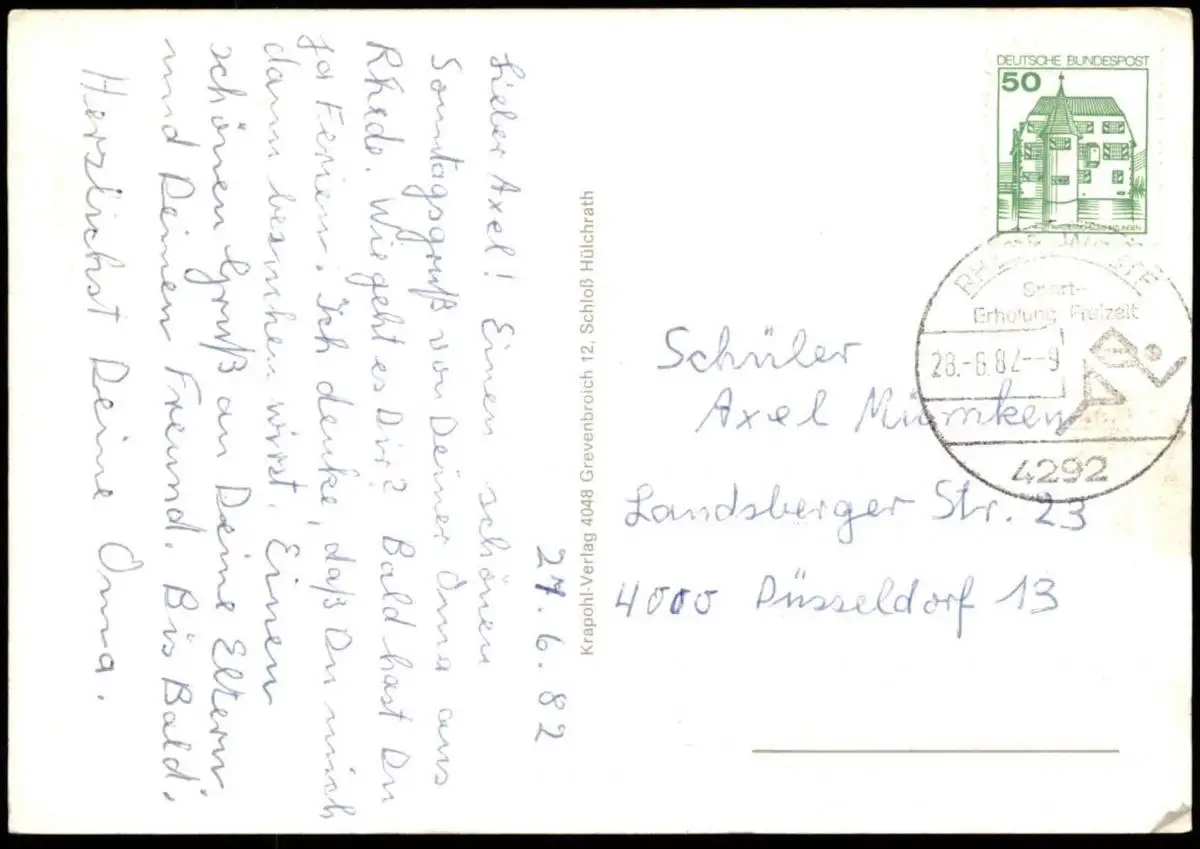 27.6.82
Lieber Axel! Einen schönen
Sonntagsgruß von Deiner Oma aus
Rhede. Wie geht es Dir? Bald hast Du
ja Ferien. Ich denke, daß Du mich
dann besuchen wirst. Einen
schönen Gruß an Deine Eltern
und Deinen Freund. Bis Bald.
Herzlichst Deine Oma.
Krapohl-Verlag 4048 Grevenbroich 12, Schloß Hülchrath
DEUTSCHE BUNDESPOST
50
Sport-
Erholung Freizeit
28.-6.82--9
4292
Schüler
Axel
Landsberger Str. 23
4000 Düsseldorf 13